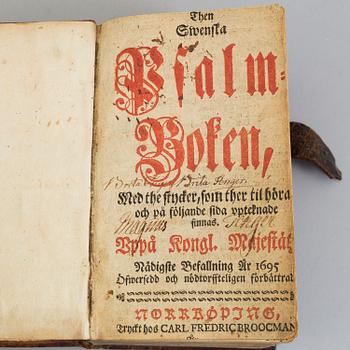 Then
Swenska
Psalm-
Boken,
Med the stycker, som ther til höra
och på följande sida upteknade
finnas.
Magnus
Uppå Kongl. Majestätz
Nådigste Befallning År 1695
Öfwersedd och nödtorffteligen förbättrat
NORRKÖPING,
Tryckt hos CARL FREDRIC BROOCMAN